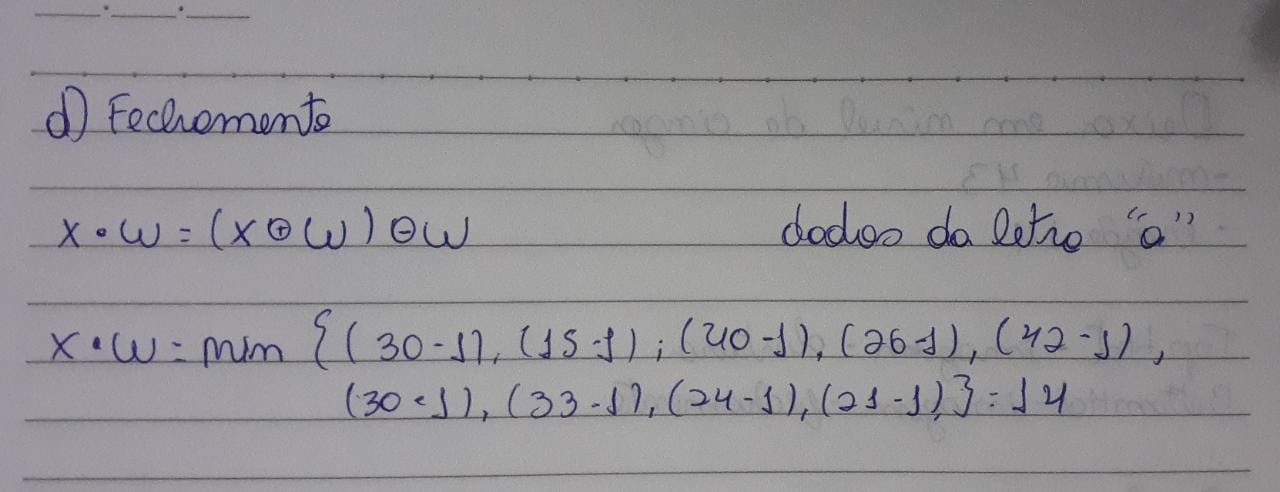 d) Fechamento
X • W = (X ⊕ W) ⊖ W dados da letra "a"
X • W = min {(30-1), (15-1); (40-1), (26-1), (42-1),
(30-1), (33-1), (24-1), (21-1)} = 14